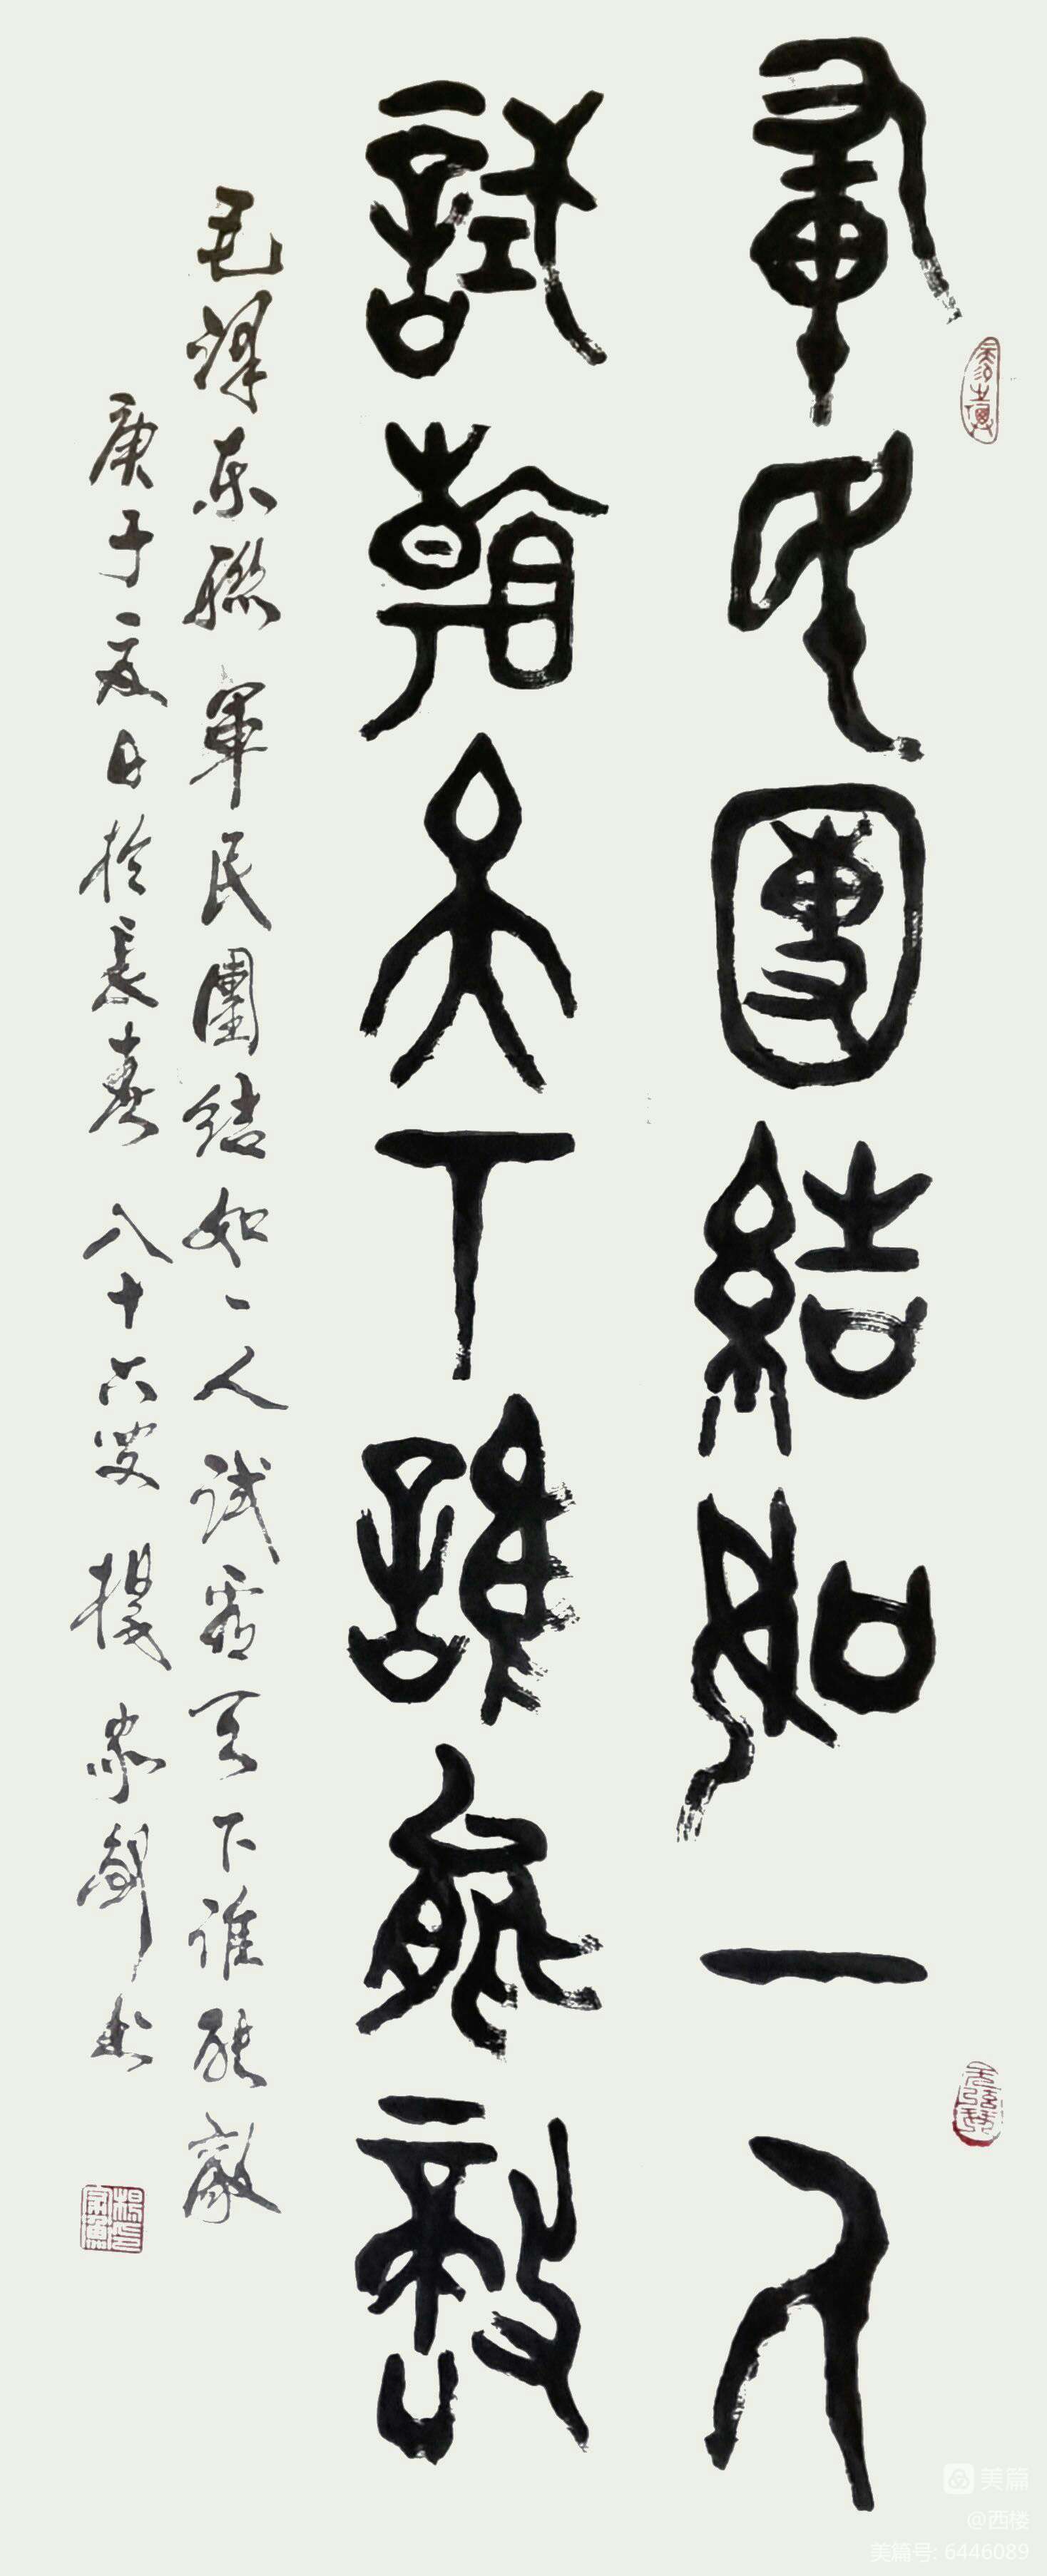 軍民團結如一人
試看天下誰能敵
毛澤東聯 軍民團結如一人 試看天下谁能敵
庚子夏日於長春 八十六叟 楊家聲书
美篇
@西楼
美篇号: 6446089